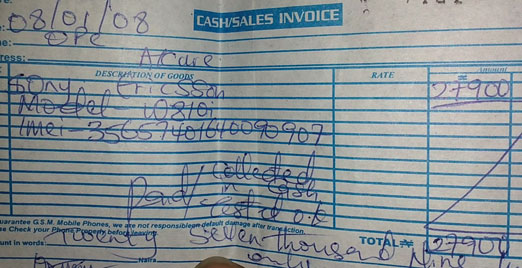 CASH/SALES INVOICE
08/01/08
OPE
Akure
DESCRIPTION OF GOODS RATE Amount
₦
Sony Ericsson 27900
Model - W810i
Imei - 35657401610090907
Collected
Paid/ in cash
Tested o.k
Guarantee G.S.M. Mobile Phones, we are not responsible an default damage after transaction.
Check Your Phone Properly before leaving
TOTAL ₦ 27900
Twenty Seven thousand Nine
in words:
Naira only